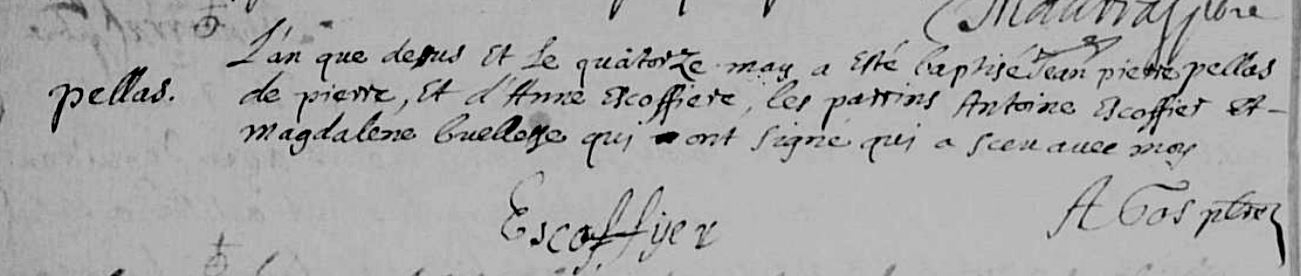 ptre
L'an que desus et le quatorze may a esté baptisé Jean pierre pellas
pellas.
de pierre, et d'Anne Escoffiere, les parrins Antoine Escoffier et
magdalene qui ont signé qui a sceu avec moy
Escoffyer
ptre